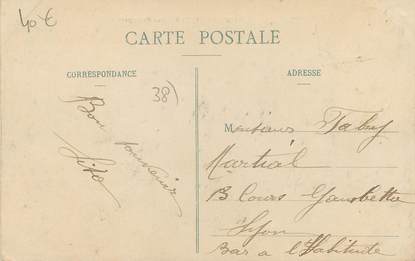 40 €
CARTE POSTALE
CORRESPONDANCE
ADRESSE
38)
Bon
souvenir
Monsieur
Martial
Cours Gambetta
Lyon
Bar a l'Habitude